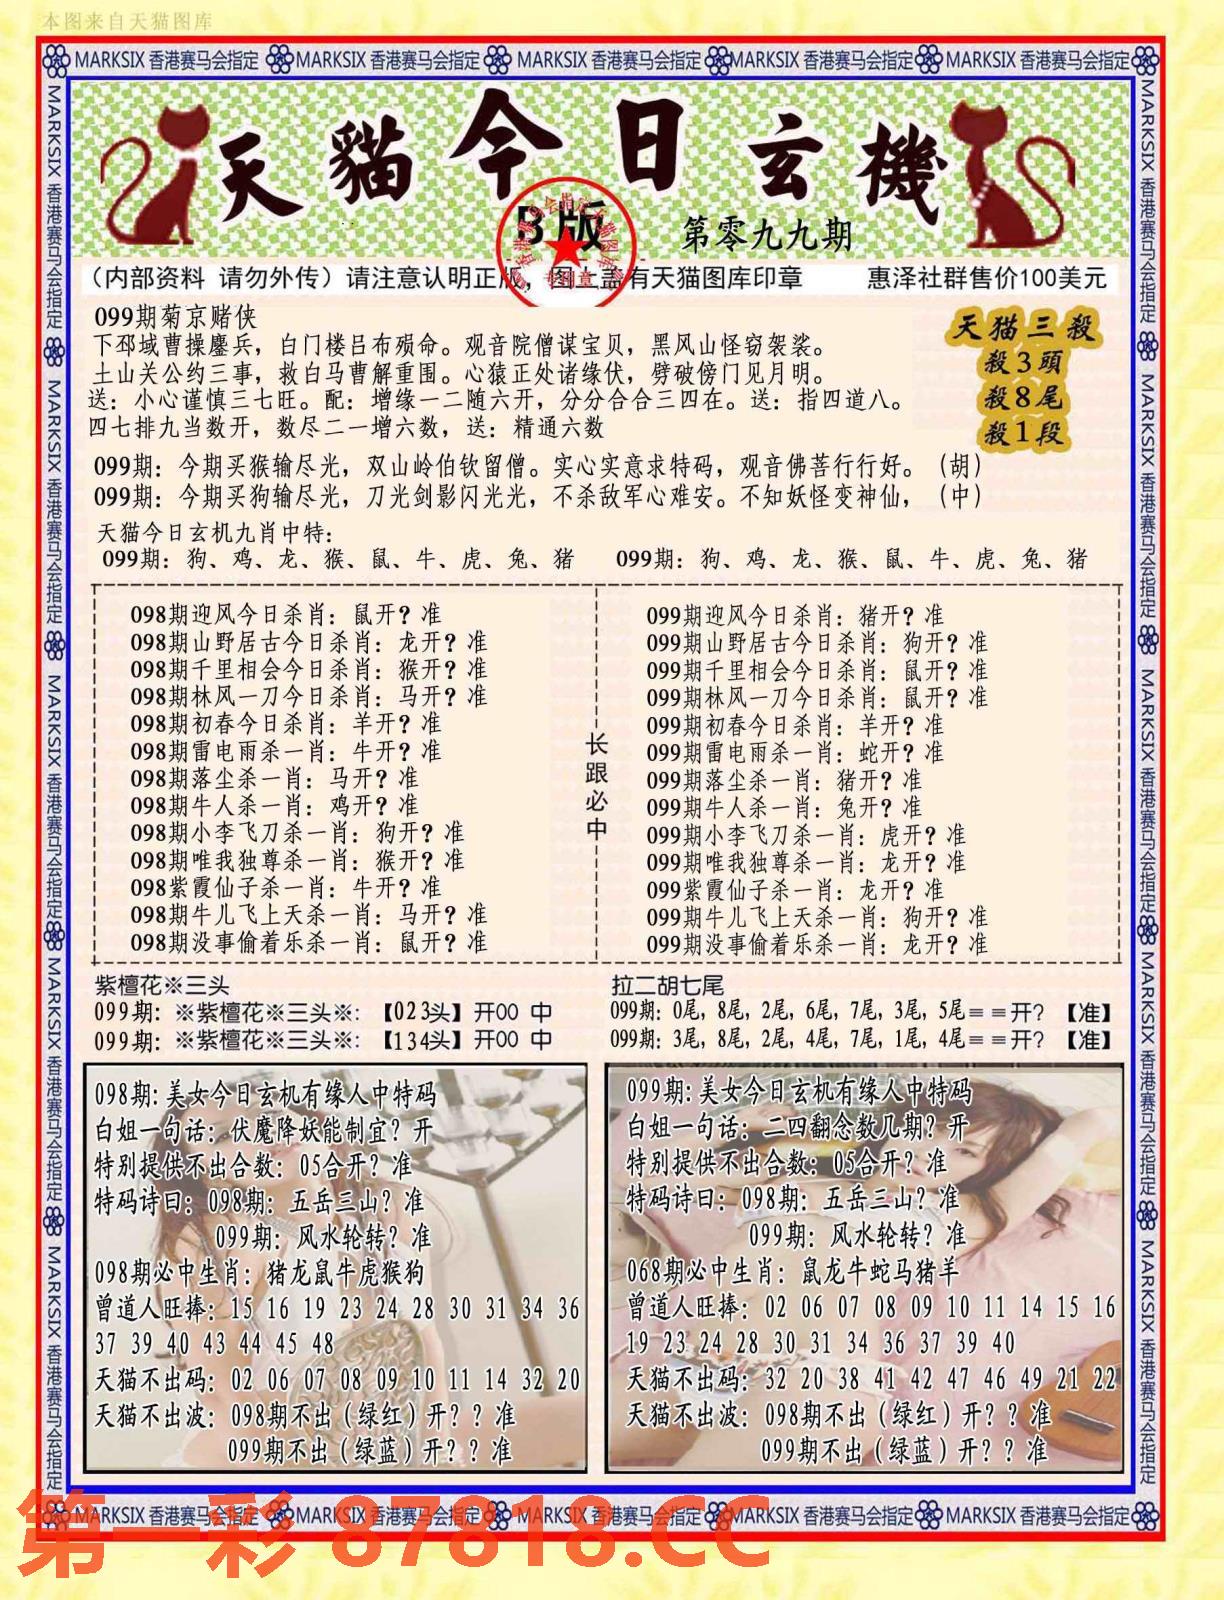 本图来自天猫图库
MARKSIX 香港赛马会指定 MARKSIX 香港赛马会指定 MARKSIX 香港赛马会指定 MARKSIX 香港赛马会指定 MARKSIX 香港赛马会指定
天貓今日玄機
B版
第零九九期
（内部资料 请勿外传）请注意认明正版，图上盖有天猫图库印章 惠泽社群售价100美元
099期菊京赌侠
下邳域曹操鏖兵，白门楼吕布殒命。观音院僧谋宝贝，黑风山怪窃袈裟。
土山关公约三事，救白马曹解重围。心猿正处诸缘伏，劈破傍门见月明。
送：小心谨慎三七旺。配：增缘一二随六开，分分合合三四在。送：指四道八。
四七排九当数开，数尽二一增六数，送：精通六数
天猫三殺
殺3頭
殺8尾
殺1段
099期：今期买猴输尽光，双山岭伯钦留僧。实心实意求特码，观音佛菩行行好。（胡）
099期：今期买狗输尽光，刀光剑影闪光光，不杀敌军心难安。不知妖怪变神仙，（中）
天猫今日玄机九肖中特：
099期：狗、鸡、龙、猴、鼠、牛、虎、兔、猪 099期：狗、鸡、龙、猴、鼠、牛、虎、兔、猪
098期迎风今日杀肖：鼠开？准
098期山野居古今日杀肖：龙开？准
098期千里相会今日杀肖：猴开？准
098期林风一刀今日杀肖：马开？准
098期初春今日杀肖：羊开？准
098期雷电雨杀一肖：牛开？准
098期落尘杀一肖：马开？准
098期牛人杀一肖：鸡开？准
098期小李飞刀杀一肖：狗开？准
098期唯我独尊杀一肖：猴开？准
098紫霞仙子杀一肖：牛开？准
098期牛儿飞上天杀一肖：马开？准
098期没事偷着乐杀一肖：鼠开？准
长跟必中
099期迎风今日杀肖：猪开？准
099期山野居古今日杀肖：狗开？准
099期千里相会今日杀肖：鼠开？准
099期林风一刀今日杀肖：鼠开？准
099期初春今日杀肖：羊开？准
099期雷电雨杀一肖：蛇开？准
099期落尘杀一肖：猪开？准
099期牛人杀一肖：兔开？准
099期小李飞刀杀一肖：虎开？准
099期唯我独尊杀一肖：龙开？准
099紫霞仙子杀一肖：龙开？准
099期牛儿飞上天杀一肖：狗开？准
099期没事偷着乐杀一肖：龙开？准
紫檀花※三头
099期：※紫檀花※三头※：【023头】开00 中
099期：※紫檀花※三头※：【134头】开00 中
拉二胡七尾
099期：0尾，8尾，2尾，6尾，7尾，3尾，5尾＝＝开？【准】
099期：3尾，8尾，2尾，4尾，7尾，1尾，4尾＝＝开？【准】
098期：美女今日玄机有缘人中特码
白姐一句话：伏魔降妖能制宜？开
特别提供不出合数：05合开？准
特码诗曰：098期：五岳三山？准
099期：风水轮转？准
098期必中生肖：猪龙鼠牛虎猴狗
曾道人旺捧：15 16 19 23 24 28 30 31 34 36
37 39 40 43 44 45 48
天猫不出码：02 06 07 08 09 10 11 14 32 20
天猫不出波：098期不出（绿红）开？？准
099期不出（绿蓝）开？？准
099期：美女今日玄机有缘人中特码
白姐一句话：二四翻念数几期？开
特别提供不出合数：05合开？准
特码诗曰：098期：五岳三山？准
099期：风水轮转？准
068期必中生肖：鼠龙牛蛇马猪羊
曾道人旺捧：02 06 07 08 09 10 11 14 15 16
19 23 24 28 30 31 34 36 37 39 40
天猫不出码：32 20 38 41 42 47 46 49 21 22
天猫不出波：098期不出（绿红）开？？准
099期不出（绿蓝）开？？准
MARKSIX 香港赛马会指定 MARKSIX 香港赛马会指定 MARKSIX 香港赛马会指定 MARKSIX 香港赛马会指定 MARKSIX 香港赛马会指定
MARKSIX 香港赛马会指定 MARKSIX 香港赛马会指定 MARKSIX 香港赛马会指定 MARKSIX 香港赛马会指定 MARKSIX 香港赛马会指定
MARKSIX 香港赛马会指定 MARKSIX 香港赛马会指定 MARKSIX 香港赛马会指定 MARKSIX 香港赛马会指定 MARKSIX 香港赛马会指定
第一彩 87818.CC